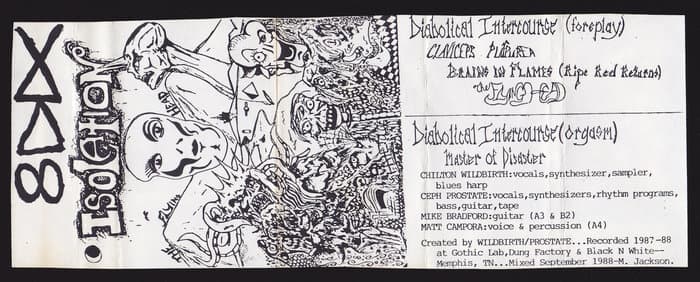 The Flying HEAD
Diabolical Intercourse (foreplay)
BRAINS IN FLAMES (Ripe Red Returns)
the FLYING HEAD
Diabolical Intercourse (orgasm)
Master of Disaster
CHILTON WILDBIRTH:vocals,synthesizer,sampler,
blues harp
CEPH PROSTATE:vocals,synthesizers,rhythm programs,
bass,guitar,tape
MIKE BRADFORD:guitar (A3 & B2)
MATT CAMPORA:voice & percussion (A4)
Created by WILDBIRTH/PROSTATE...Recorded 1987-88
at Gothic Lab,Dung Factory & Black N White--
Memphis, TN...Mixed September 1988-M. Jackson.